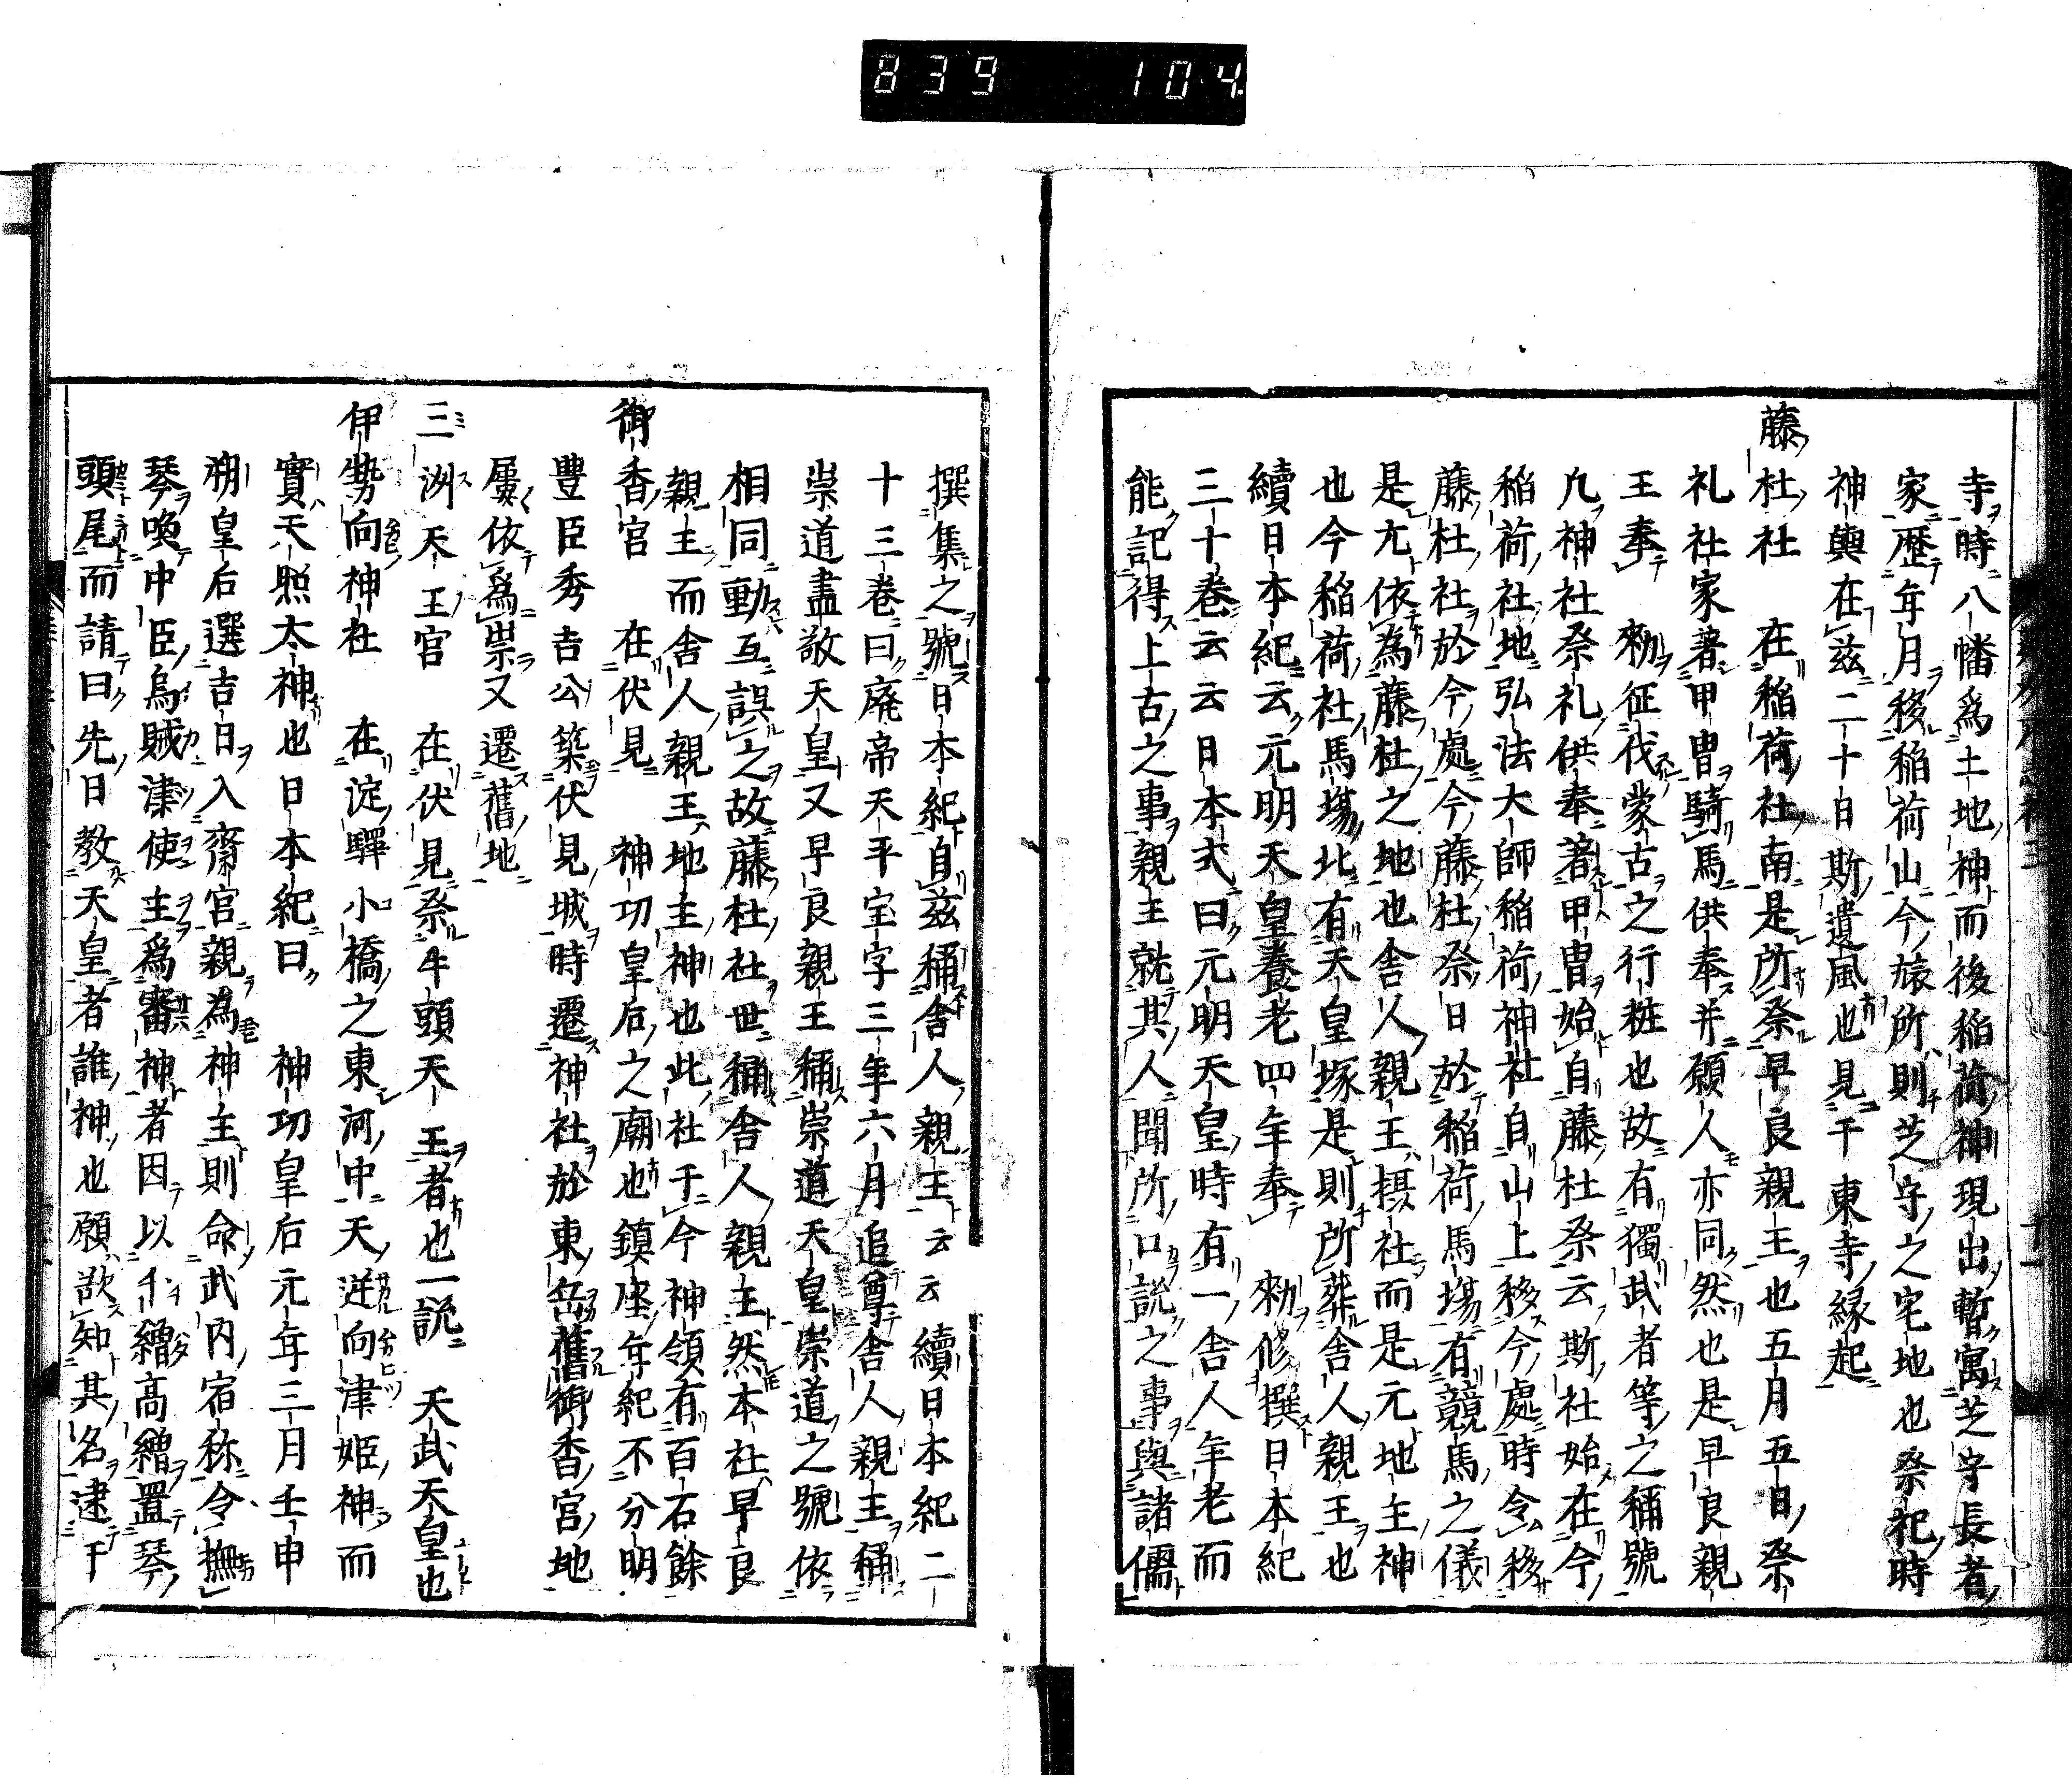 839 104
寺時八幡爲土地神而後稲荷神現出暫寓芝守長者
家歴年月移稲荷山今旅所則芝守之宅地也祭祀時
神輿在茲二十日斯遺風也見于東寺縁起
藤杜社 在稲荷杜南是所祭早良親王也五月五日祭
礼社家著甲冑騎馬供奉并願人亦同然也是早良親
王奉 勑征伐蒙古之行粧也故有獨武者等之稱號
凡神社祭礼供奉著甲冑始自藤杜祭云斯社始在今
稲荷社地弘法大師稲荷神社自山上移今處時令移
藤杜社於今處今藤杜祭日於稲荷馬塲有競馬之儀
是尢依為藤杜之地也舎人親王摂社而是元地主神
也今稲荷杜馬塲北有天皇塚是則所葬舎人親王也
續日本紀云元明天皇養老四年奉 勑修撰日本紀
三十巻云云日本弍曰元明天皇時有一舎人年老而
能記得上古之事親王就其人聞所口説之事與諸儒
撰集之號日本紀自茲稱舎人親王云云續日本紀二
十三巻曰廃帝天平宝字三年六月追尊舎人親王稱
崇道盡敬天皇又早良親王稱崇道天皇崇道之號依
相同動互誤之故藤杜社世稱舎人親王然本社早良
親王而舎人親王地主神也此社于今神領有百石餘
御香宮 在伏見 神功皇后之廟也鎮座年紀不分明
豊臣秀吉公築伏見城時遷神社於東岳舊御香宮地
屢依爲祟又遷舊地
三洲天王宮 在伏見祭牛頭天王者也一説 天武天皇也
伊勢向神社 在淀驛小橋之東河中天逆向津姫神而
實天照太神也日本紀曰 神功皇后元年三月壬申
朔皇后選吉日入齋宮親為神主則命武内宿称令撫
琴喚中臣烏賊津使主爲審神者因以千繒高繒置琴
頭尾而請曰先日教天皇者誰神也願欲知其名逮于